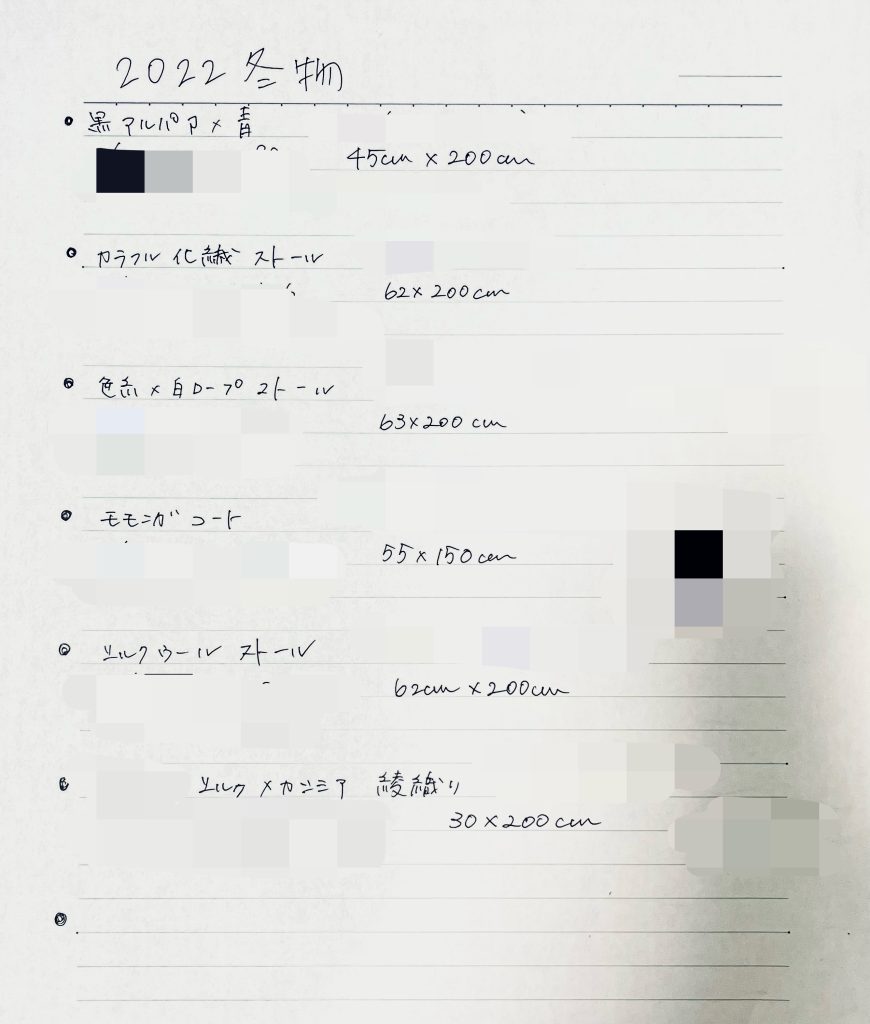 2022 冬物
黒アルパカ×青
45cm × 200cm
カラフル 化繊 ストール
62×200cm
色糸×白ロープ ストール
63×200cm
モモンガ コート
55×150cm
シルクウール ストール
62cm×200cm
シルク×カシミア 綾織り
30×200cm